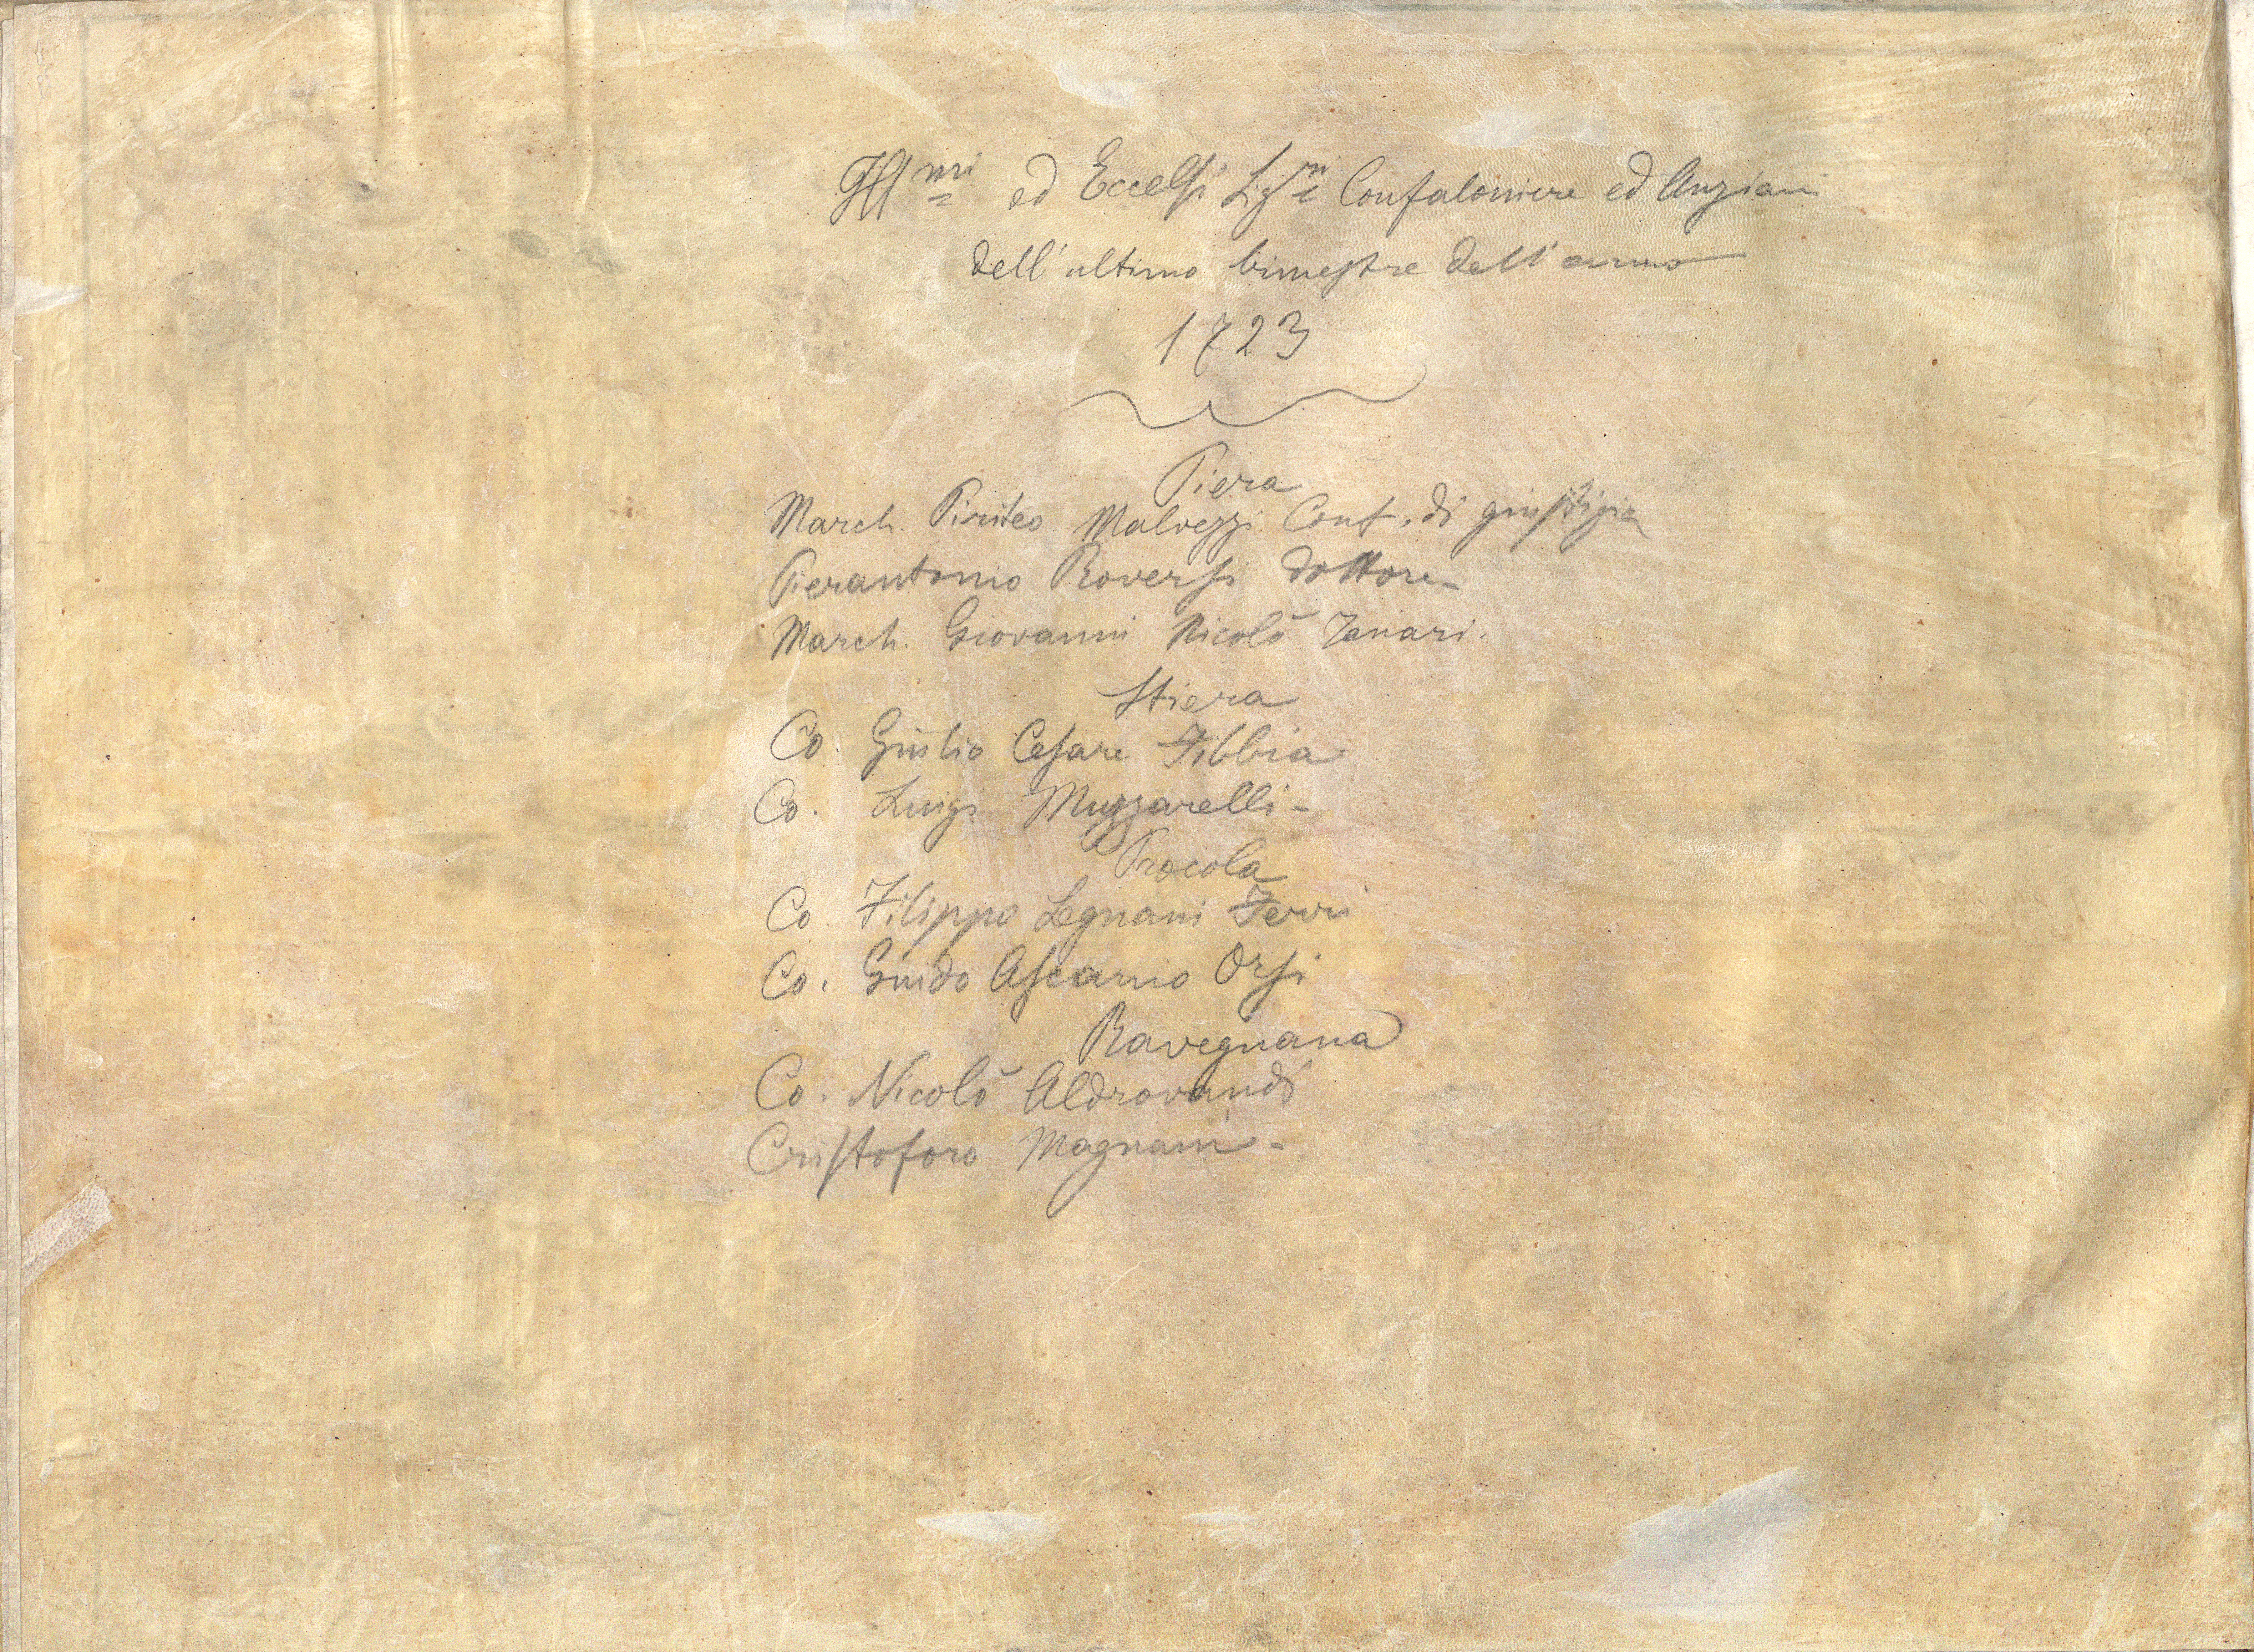 Ill.mi ed Eccelsi Sig.ri Confaloniere ed Anziani
dell'ultimo bimestre dell'anno
1723
Piera
March. Piriteo Malvezzi Conf. di giustizia
Pierantonio Roversi dottore
March. Giovanni Nicolò Tanari.
Stiera
Co. Giulio Cesare Fibbia
Co. Luigi Muzzarelli
Procola
Co. Filippo Legnani Ferri
Co. Guido Ascanio Orsi
Ravegnana
Co. Nicolò Aldrovandi
Cristoforo Magnani